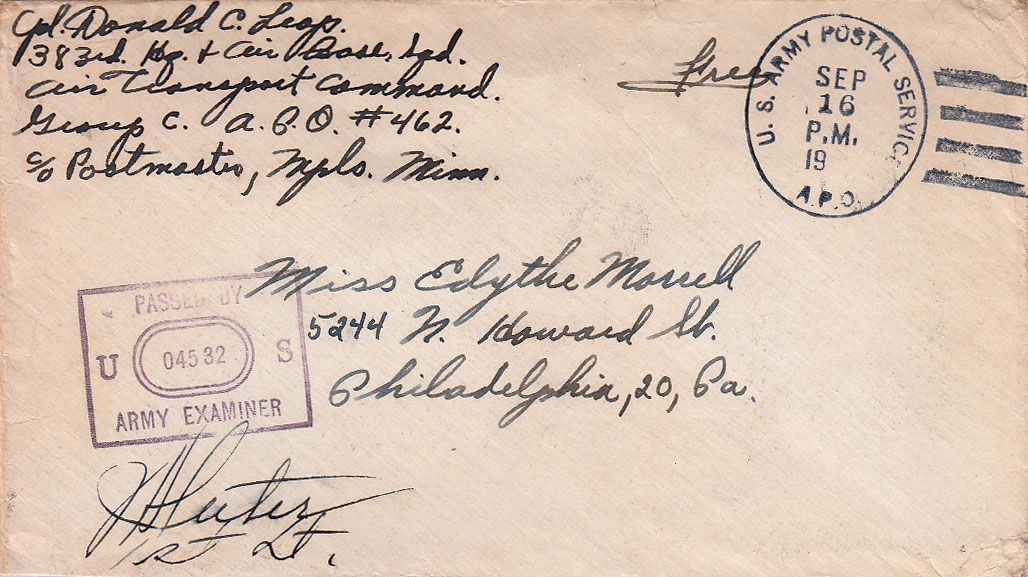 Cpl. Donald C. Leap.
383rd. Hq. & Air Base, Sqd.
Air Transport Command.
Group C. A.P.O. #462.
c/o Postmaster, Mpls. Minn.
Free
U. S. ARMY POSTAL SERVICE
SEP
16
P.M.
19
A.P.O.
Miss Edythe Morrell
5244 N. Howard St.
Philadelphia, 20, Pa.
PASSED BY
U 04532 S
ARMY EXAMINER
1st Lt.